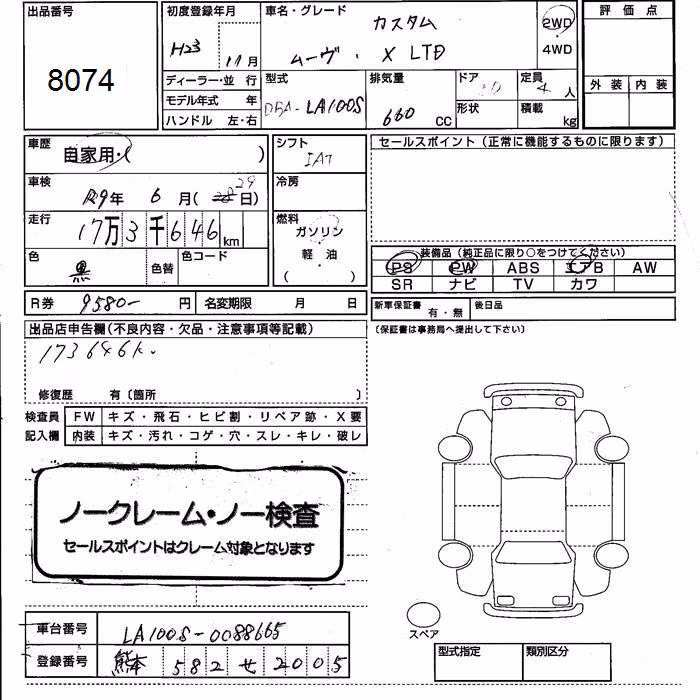 出品番号
8074
初度登録年月
H23 11月
車名・グレード
カスタム
ムーヴ・X LTD
2WD
4WD
評価点
外装 内装
ディーラー・並行
モデル年式 年
ハンドル 左・右
型式
DBA-LA100S
排気量
660 CC
ドア
形状
定員
4 人
積載
kg
車歴
自家用・( )
シフト
IAT
セールスポイント(正常に機能するものに限ります)
車検
R9年 6月(29日)
冷房
走行
17万3千646km
燃料
ガソリン
軽・油
( )
色
黒
色替
色コード
装備品(純正品に限り○をつけてください)
PS PW ABS エアB AW
SR ナビ TV カワ
R券 9580- 円 名変期限 月 日
新車保証書 有・無 後日品
(保証書は事務局へ提出して下さい)
出品店申告欄(不良内容・欠品・注意事項等記載)
173646k.
修復歴 有〔箇所 〕
検査員 FW キズ・飛石・ヒビ割・リペア跡・X要
記入欄 内装 キズ・汚れ・コゲ・穴・スレ・キレ・破レ
ノークレーム・ノー検査
セールスポイントはクレーム対象となります
車台番号 LA100S-0088665
登録番号 熊本 582 せ 2005
スペア
型式指定 類別区分